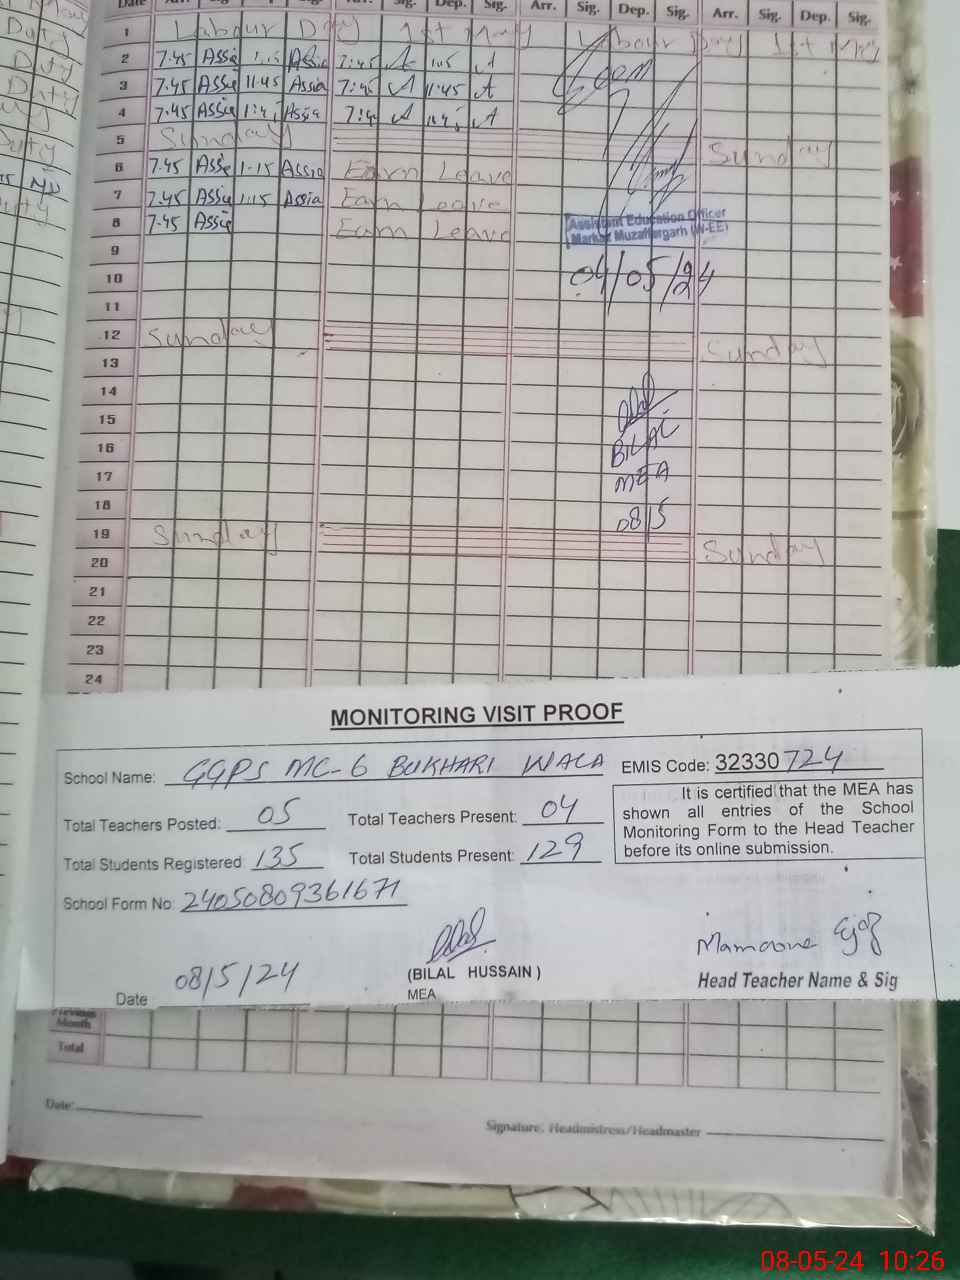 Date Arr. Sig. Dep. Sig. Arr. Sig. Dep. Sig. Arr. Sig. Dep. Sig.
1 Labour Day 1st May Labour Day 1st May
2 7.45 Assia 1.15 Assia 7:45 A 1:15 A
3 7.45 Assia 11.45 Assia 7:45 A 11.45 A
4 7.45 Assia Assia A A
5 Sunday Sunday
6 7.45 Assia 1.15 Assia Earn Leave
7 7.45 Assia 1.15 Assia Earn Leave
8 7.45 Assia Earn Leave
Assistant Education Officer
Markaz Muzaffargarh (W-EE)
9
10 04/05/24
11
12 Sunday Sunday
13
14
15
BILAL
16
17 MEA
18 08/5
19 Sunday Sunday
20
21
22
23
24
MONITORING VISIT PROOF
School Name: GGPS MC-6 BUKHARI WALA EMIS Code: 32330724
Total Teachers Posted: 05 Total Teachers Present: 04
Total Students Registered: 135 Total Students Present: 129
It is certified that the MEA has
shown all entries of the School
Monitoring Form to the Head Teacher
before its online submission.
School Form No: 24050809361671
Date 08/5/24
(BILAL HUSSAIN)
MEA
Mamoona Ejaz
Head Teacher Name & Sig
Previous
Month
Total
Date:
Signature: Headmistress/Headmaster
08-05-24 10:26